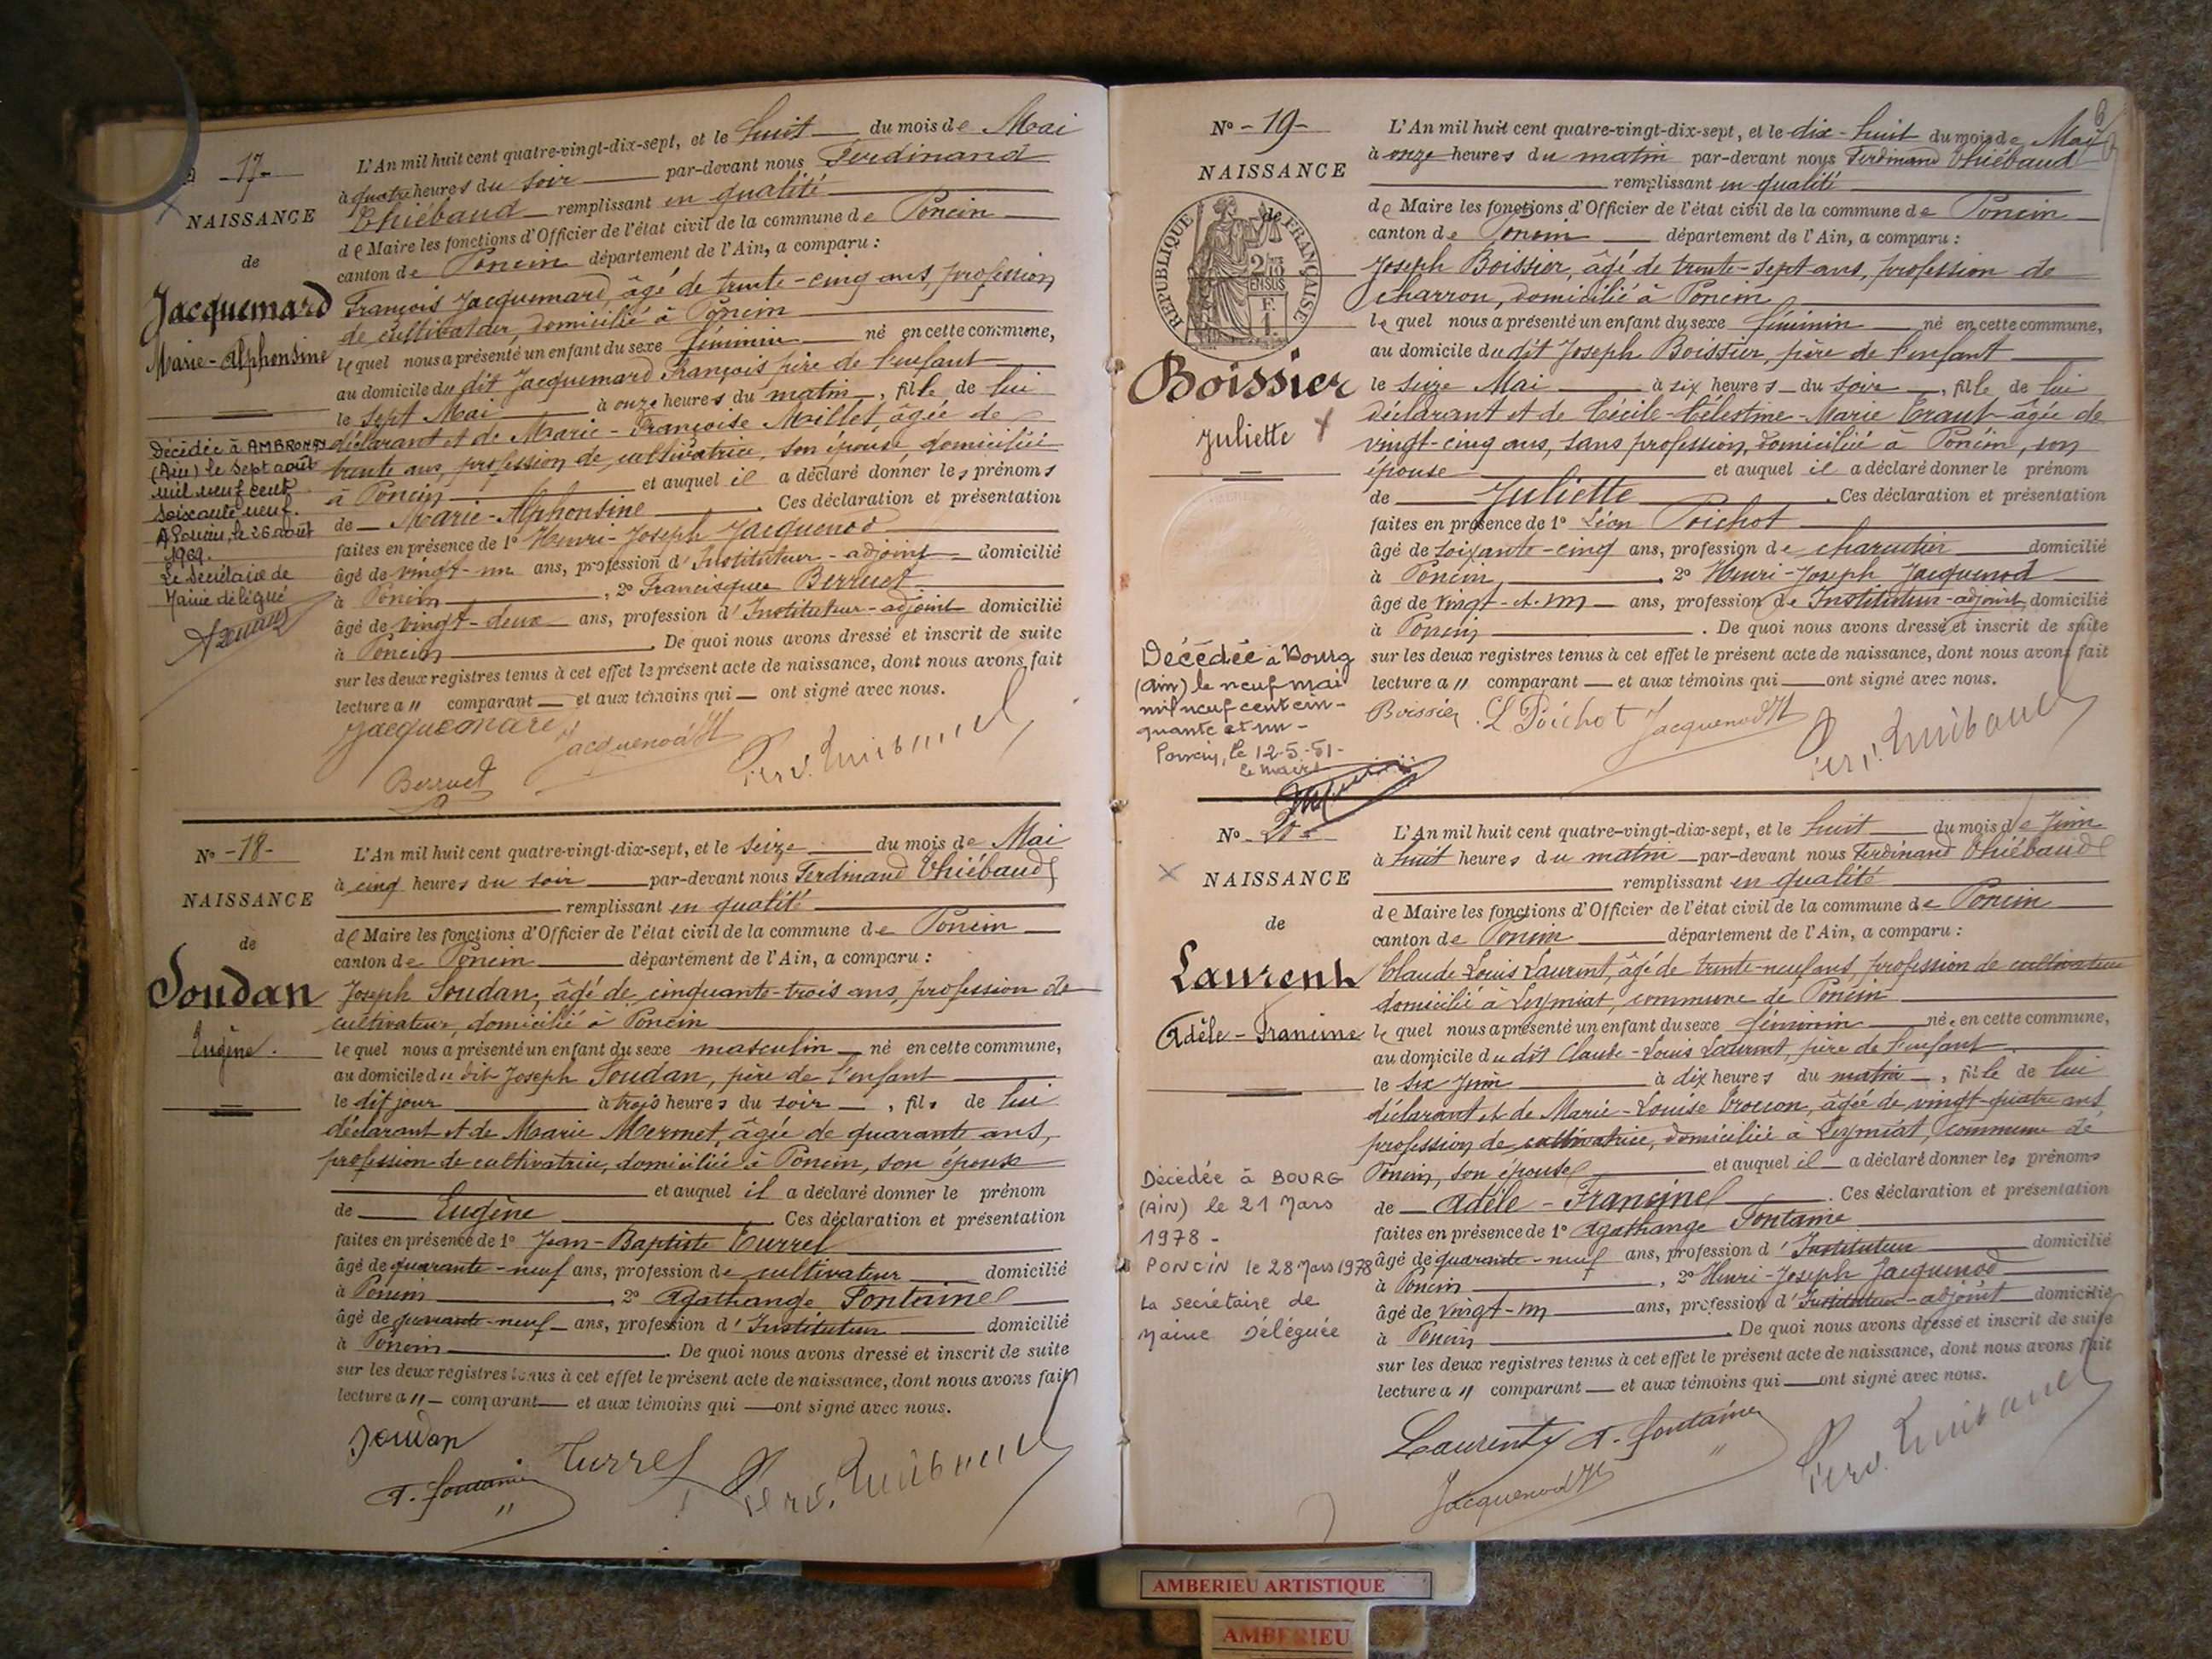 17-
NAISSANCE
de
Jacquemard
Marie-Alphonsine
Décédée à AMBRONAY
(Ain) le sept août
mil neuf cent
soixante neuf.
A Poncin, le 26 août
1969.
Le Secrétaire de
Mairie délégué
L'An mil huit cent quatre-vingt-dix-sept, et le huit du mois de Mai
à quatre heures du soir par-devant nous Ferdinand
Thiébaud remplissant en qualité
de Maire les fonctions d'Officier de l'état civil de la commune de Poncin
canton de Poncin département de l'Ain, a comparu :
François Jacquemard, âgé de trente-cinq ans, profession
de cultivateur, domicilié à Poncin
lequel nous a présenté un enfant du sexe féminin né en cette commune,
au domicile du dit Jacquemard François père de l'enfant
le sept Mai à onze heures du matin, fille de lui
déclarant et de Marie-Françoise Millet, âgée de
trente ans, profession de cultivatrice, son épouse, domiciliée
à Poncin et auquel il a déclaré donner les prénoms
de Marie-Alphonsine. Ces déclaration et présentation
faites en présence de 1° Henri-Joseph Jacquenod
âgé de vingt-un ans, profession d'Instituteur-adjoint domicilié
à Poncin, 2° Francisque Berruet
âgé de vingt-deux ans, profession d'Instituteur-adjoint domicilié
à Poncin. De quoi nous avons dressé et inscrit de suite
sur les deux registres tenus à cet effet le présent acte de naissance, dont nous avons fait
lecture a " comparant et aux témoins qui ont signé avec nous.
Jacquemard Jacquenod H
Berruet Ferd. Thiébaud
N° -18-
NAISSANCE
de
Soudan
Eugène.
L'An mil huit cent quatre-vingt-dix-sept, et le seize du mois de Mai
à cinq heures du soir par-devant nous Ferdinand Thiébaud
remplissant en qualité
de Maire les fonctions d'Officier de l'état civil de la commune de Poncin
canton de Poncin département de l'Ain, a comparu :
Joseph Soudan, âgé de cinquante-trois ans, profession de
cultivateur, domicilié à Poncin
lequel nous a présenté un enfant du sexe masculin né en cette commune,
au domicile du dit Joseph Soudan, père de l'enfant
le dit jour à trois heures du soir, fils de lui
déclarant et de Marie Mermet, âgée de quarante ans,
profession de cultivatrice, domiciliée à Poncin, son épouse
et auquel il a déclaré donner le prénom
de Eugène Ces déclaration et présentation
faites en présence de 1° Jean-Baptiste Turrel
âgé de quarante-neuf ans, profession de cultivateur domicilié
à Poncin 2° Agathange Fontaine
âgé de quarante-neuf ans, profession d'Instituteur domicilié
à Poncin. De quoi nous avons dressé et inscrit de suite
sur les deux registres tenus à cet effet le présent acte de naissance, dont nous avons fait
lecture a " comparant et aux témoins qui ont signé avec nous.
Soudan
A. Fontaine Turrel Ferd. Thiébaud
6
N° -19-
NAISSANCE
de
REPUBLIQUE FRANÇAISE
2/10
EN SUS
Boissier
Juliette
Décédée à Bourg
(Ain) le neuf mai
mil neuf cent cin-
quante et un-
Poncin, le 12-5-51-
le maire
L'An mil huit cent quatre-vingt-dix-sept, et le dix-huit du mois de Mai
à onze heures du matin par-devant nous Ferdinand Thiébaud
remplissant en qualité
de Maire les fonctions d'Officier de l'état civil de la commune de Poncin
canton de Poncin département de l'Ain, a comparu :
Joseph Boissier, âgé de trente-sept ans, profession de
charron, domicilié à Poncin
lequel nous a présenté un enfant du sexe féminin né en cette commune,
au domicile du dit Joseph Boissier, père de l'enfant
le seize Mai à six heures du soir, fille de lui
déclarant et de Cécile-Célestine-Marie âgée de
vingt-cinq ans, sans profession, domiciliée à Poncin, son
épouse et auquel il a déclaré donner le prénom
de Juliette. Ces déclaration et présentation
faites en présence de 1° Léon Poichot
âgé de soixante-cinq ans, profession de charcutier domicilié
à Poncin, 2° Henri-Joseph Jacquenod
âgé de vingt-et-un ans, profession de Instituteur-adjoint, domicilié
à Poncin. De quoi nous avons dressé et inscrit de suite
sur les deux registres tenus à cet effet le présent acte de naissance, dont nous avons fait
lecture a " comparant et aux témoins qui ont signé avec nous.
Boissier L Poichot Jacquenod H Ferd. Thiébaud
N° 20
NAISSANCE
de
Laurent
Adèle-Francine
Décédée à BOURG
(AIN) le 21 Mars
1978-
PONCIN le 28 Mars 1978
La Secrétaire de
Mairie Déléguée
L'An mil huit cent quatre-vingt-dix-sept, et le huit du mois de Juin
à huit heures du matin par-devant nous Ferdinand Thiébaud
remplissant en qualité
de Maire les fonctions d'Officier de l'état civil de la commune de Poncin
canton de Poncin département de l'Ain, a comparu :
Claude Louis Laurent, âgé de trente-neuf ans, profession de cultivateur
domicilié à Leymiat, commune de Poncin
lequel nous a présenté un enfant du sexe féminin né en cette commune,
au domicile du dit Claude-Louis Laurent, père de l'enfant
le six Juin à dix heures du matin, fille de lui
déclarant et de Marie-Louise âgée de vingt-quatre ans,
profession de cultivatrice, domiciliée à Leymiat, commune de
Poncin, son épouse et auquel il a déclaré donner les prénoms
de Adèle-Francine. Ces déclaration et présentation
faites en présence de 1° Agathange Fontaine
âgé de quarante-neuf ans, profession d'Instituteur domicilié
à Poncin, 2° Henri-Joseph Jacquenod
âgé de vingt-un ans, profession d'Instituteur-adjoint domicilié
à Poncin. De quoi nous avons dressé et inscrit de suite
sur les deux registres tenus à cet effet le présent acte de naissance, dont nous avons fait
lecture a " comparant et aux témoins qui ont signé avec nous.
Laurent A. Fontaine
Jacquenod H Ferd. Thiébaud
AMBERIEU ARTISTIQUE
AMBERIEU